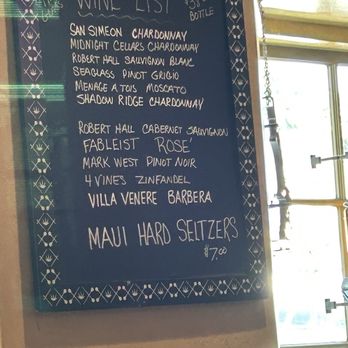 WINE LIST
BOTTLE
SAN SIMEON CHARDONNAY
MIDNIGHT CELLARS CHARDONNAY
ROBERT HALL SAUVIGNON BLANC
SEAGLASS PINOT GRIGIO
MENAGE A TOIS MOSCATO
SHADOW RIDGE CHARDONNAY
ROBERT HALL CABERNET SAUVIGNON
FABLEIST "ROSE'
MARK WEST PINOT NOIR
4 VINES ZINFANDEL
VILLA VENERE BARBERA
MAUI HARD SELTZERS
$7.00